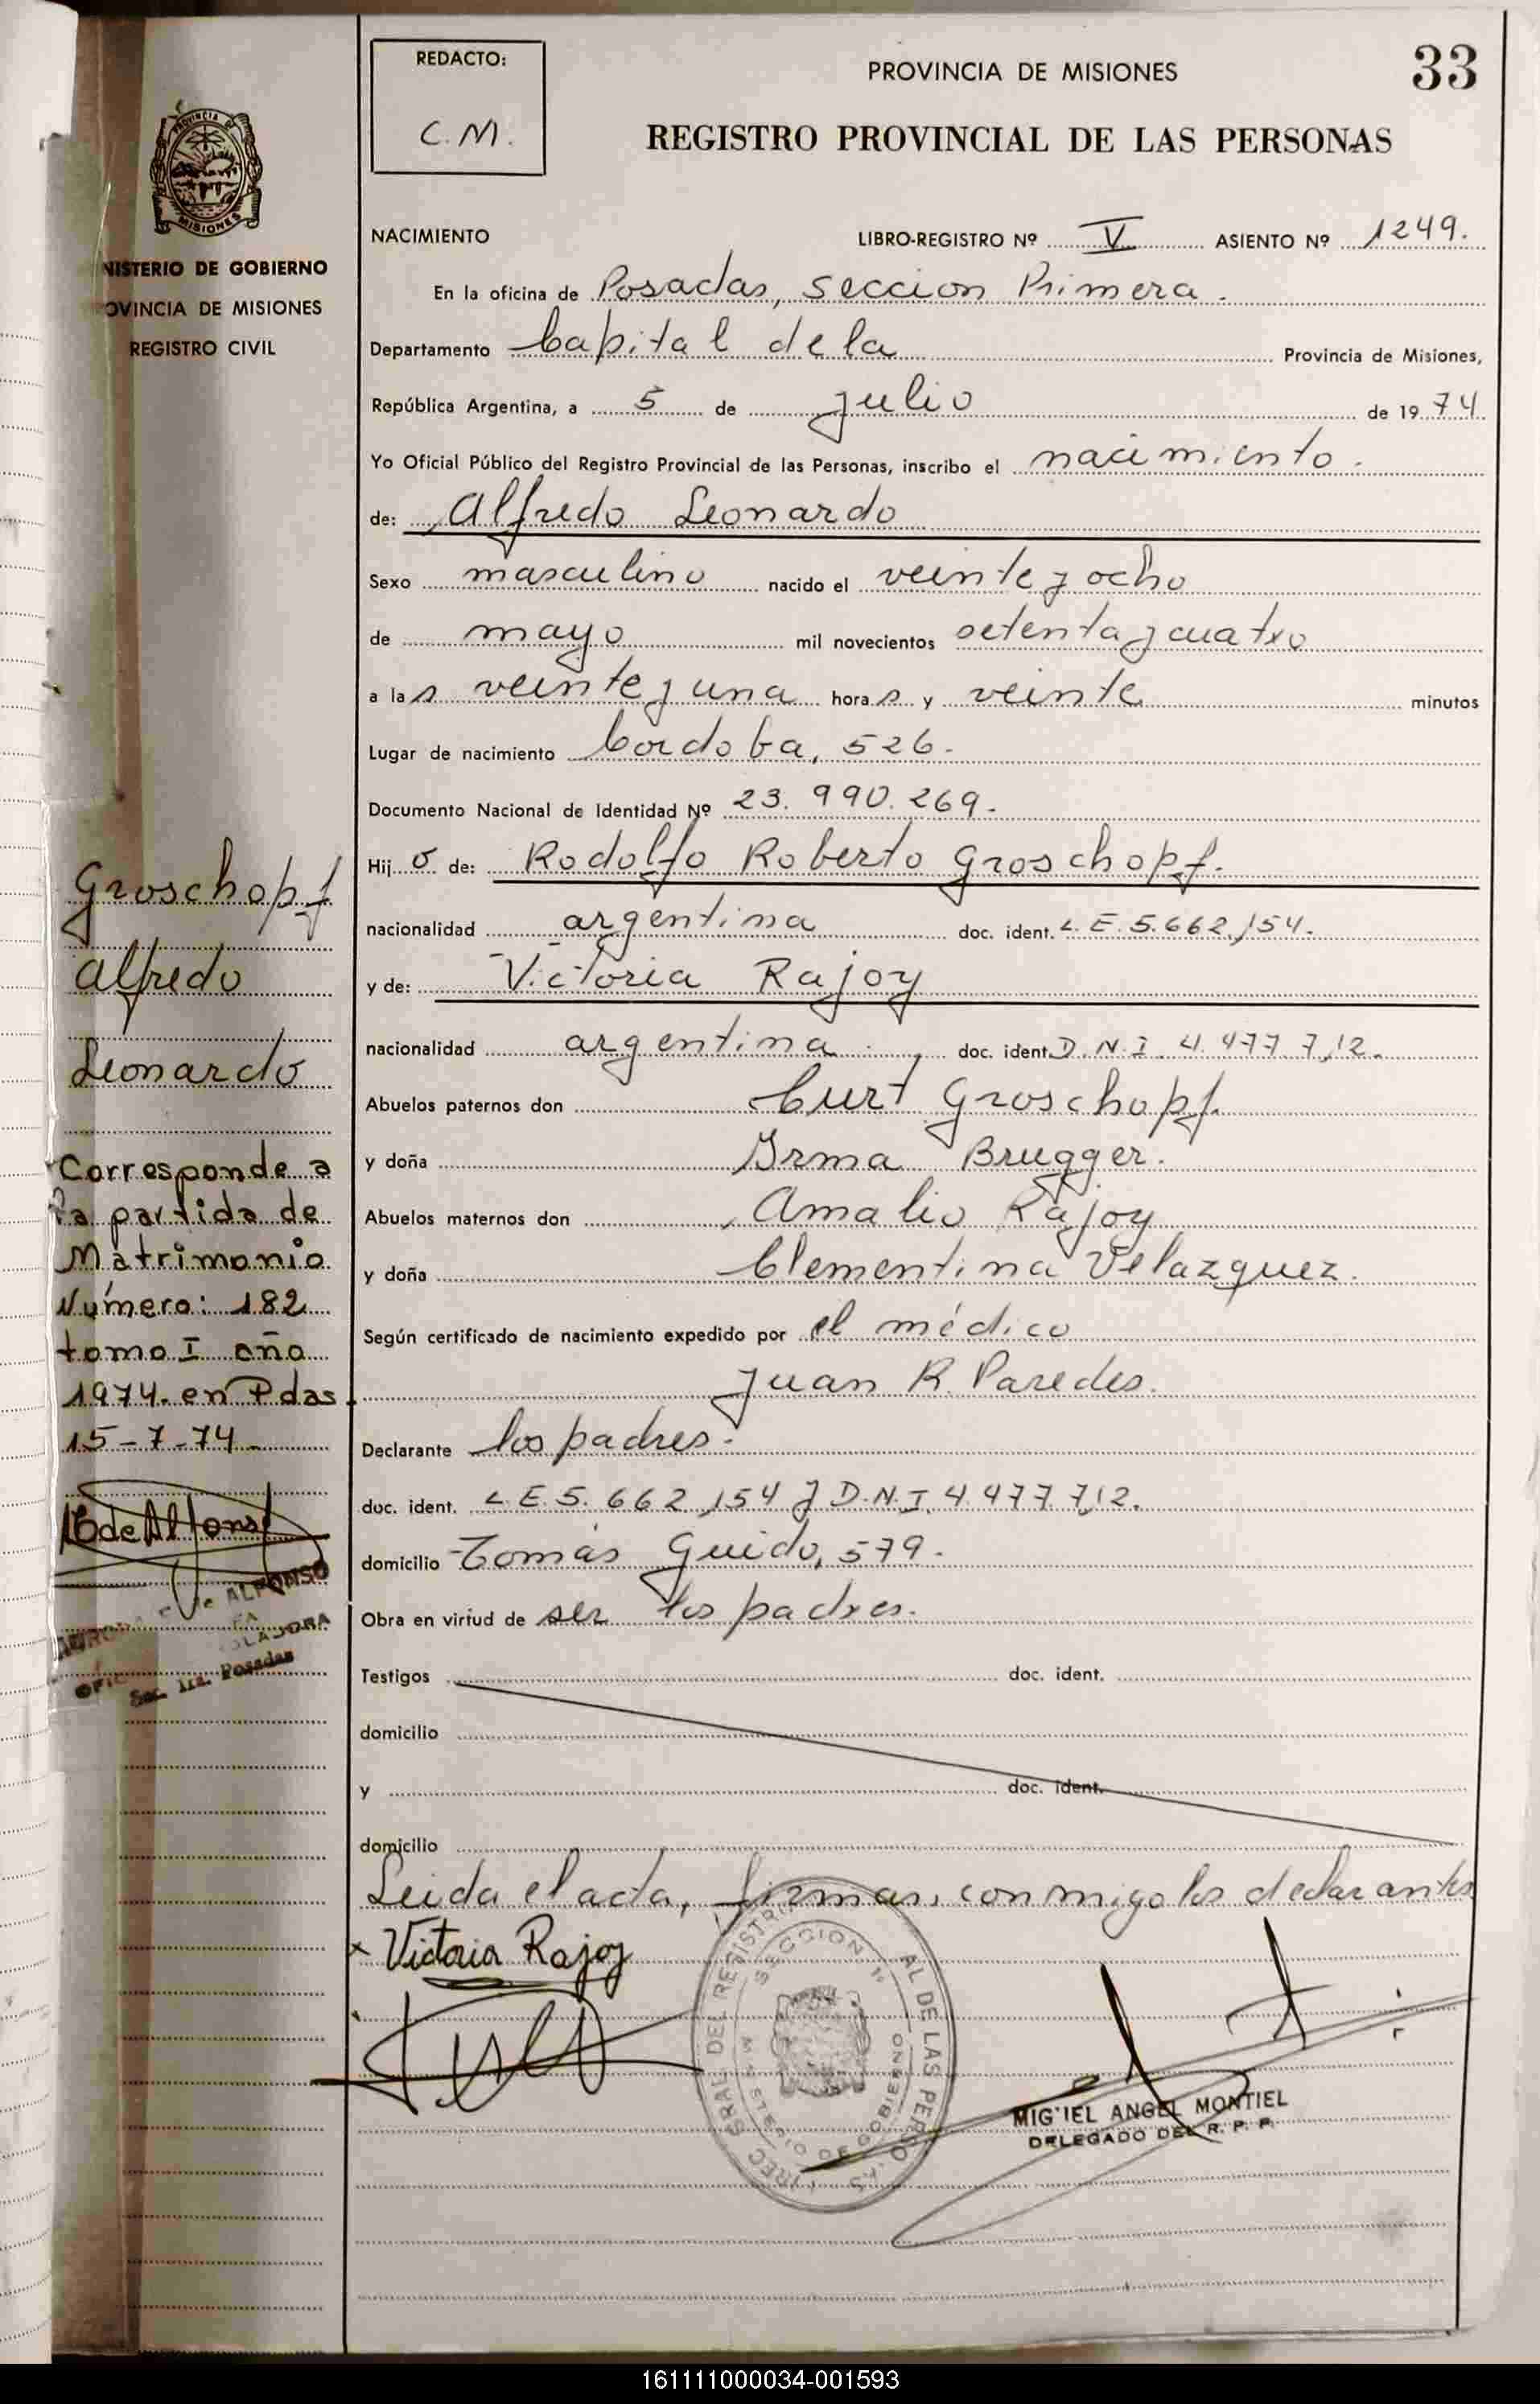 33
REDACTO:
C.M.
PROVINCIA DE MISIONES
REGISTRO PROVINCIAL DE LAS PERSONAS
MISIONES
NISTERIO DE GOBIERNO
OVINCIA DE MISIONES
REGISTRO CIVIL
NACIMIENTO LIBRO-REGISTRO Nº V ASIENTO Nº 1249.
En la oficina de Posadas, seccion Primera.
Departamento Capital de la Provincia de Misiones,
República Argentina, a 5 de julio de 1974
Yo Oficial Público del Registro Provincial de las Personas, inscribo el nacimiento.
de: Alfredo Leonardo
Sexo masculino nacido el veinte y ocho
de mayo mil novecientos setenta y cuatro
a las veinte y una horas y veinte minutos
Lugar de nacimiento Cordoba, 526.
Documento Nacional de Identidad Nº 23.990.269.
Hijo de: Rodolfo Roberto Groschopf.
nacionalidad argentina doc. ident. L.E. 5.662.154.
y de: Victoria Rajoy
nacionalidad argentina doc. ident. D.N.I. 4.477.712.
Abuelos paternos don Curt Groschopf.
y doña Irma Brugger.
Abuelos maternos don Amalio Rajoy
y doña Clementina Velazquez.
Según certificado de nacimiento expedido por el médico
Juan R. Paredes.
Declarante los padres.
doc. ident. L.E. 5.662.154 y D.N.I. 4.477.712.
domicilio Tomás Guido, 579.
Obra en virtud de ser los padres.
Testigos doc. ident.
domicilio
y doc. ident.
domicilio
Leida el acta, firman conmigo los declarantes
x Victoria Rajoy
SECCION 1ª
AL DE LAS
DE GOBIERNO
MIGUEL ANGEL MONTIEL
DELEGADO DEL R. P. P.
Groschopf
Alfredo
Leonardo
Corresponde a
la partida de
Matrimonio
Número: 182
tomo I año
1974. en Pdas.
15-7-74
de ALFONSO
Sec. 1ra. Posadas
161111000034-001593